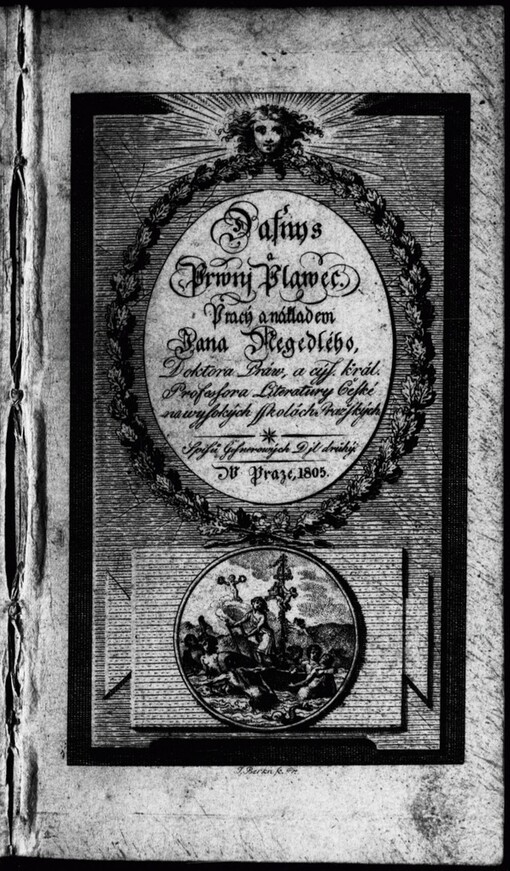 Dafnys
a
Prwnj Plawec.
Pracý a nákladem
Jana Negedlého,
Doktora Práw, a cýs. král.
Professora Literatury České
na wysokých sskolách Pražských
Spisů Gesnerowých Djl druhý.
W Praze, 1805.
J. Berka sc.